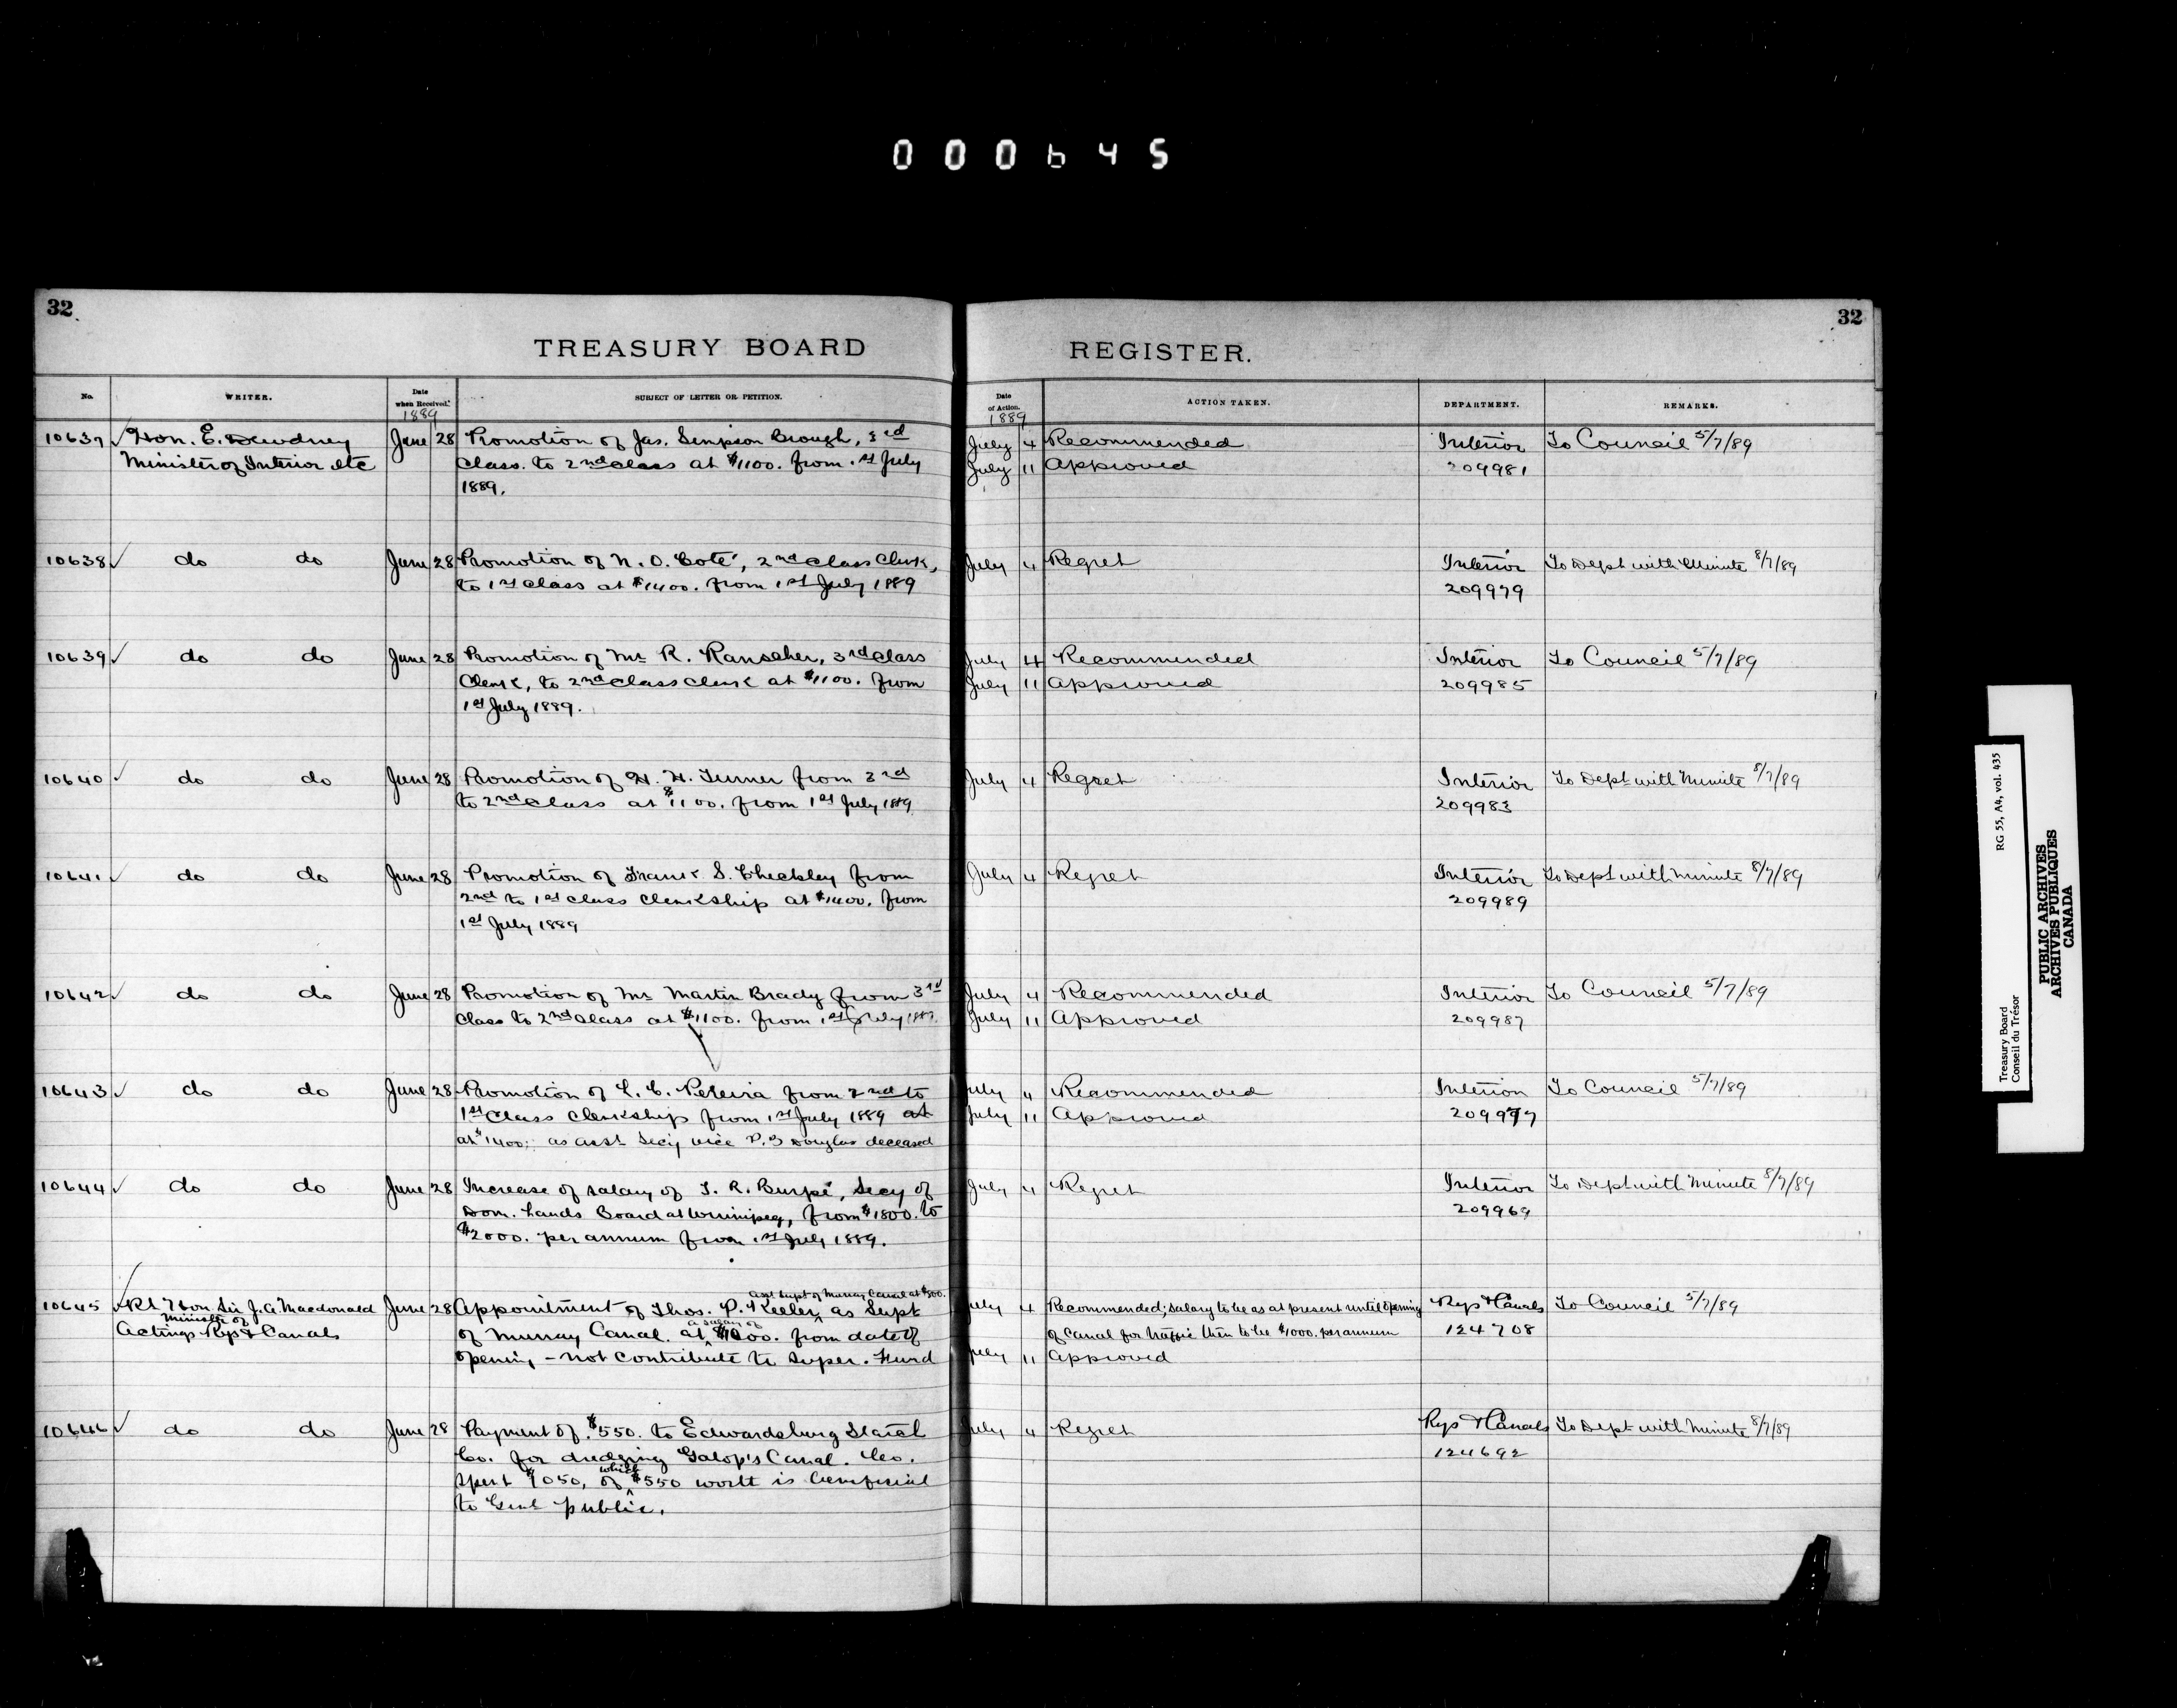 000645
32
TREASURY BOARD
REGISTER.
32
No. WRITER. Date when Received. SUBJECT OF LETTER OR PETITION. Date of Action. ACTION TAKEN. DEPARTMENT. REMARKS.
1889 1889
10637 Hon. E. Dewdney June 28 Promotion of Jas. Simpson Brough, 3rd July 4 Recommended Interior To Council 5/7/89
Minister of Interior etc Class. to 2nd Class at $1100. from 1st July July 11 Approved 209981
1889.
10638 do do June 28 Promotion of N. O. Coté, 2nd Class Clerk, July 4 Regret Interior To Dept with Minute 8/7/89
to 1st Class at $1400. from 1st July 1889 209979
10639 do do June 28 Promotion of Mr R. Ranscher, 3rd Class July 4 Recommended Interior To Council 5/7/89
Clerk, to 2nd Class Clerk at $1100. from July 11 Approved 209985
1st July 1889.
10640 do do June 28 Promotion of H. H. Turner from 3rd July 4 Regret Interior To Dept with Minute 8/7/89
to 2nd Class at $1100. from 1st July 1889 209983
10641 do do June 28 Promotion of Frank S. Checkley from July 4 Regret Interior To Dept with Minute 8/7/89
2nd to 1st Class Clerkship at $1400. from 209989
1st July 1889
10642 do do June 28 Promotion of Mr Martin Brady from 3rd July 4 Recommended Interior To Council 5/7/89
Class to 2nd Class at $1100. from 1st July 1889. July 11 Approved 209987
10643 do do June 28 Promotion of L. C. Pereira from 2nd to July 4 Recommended Interior To Council 5/7/89
1st Class Clerkship from 1st July 1889 at July 11 Approved 209977
at $1400; as asst Secy vice P. B Douglas deceased
10644 do do June 28 Increase of salary of T. R. Burpé, Secy of July 4 Regret Interior To Dept with Minute 8/7/89
Dom. Lands Board at Winnipeg, from $1800. to 209969
$2000. per annum from 1st July 1889.
asst Supt of Murray Canal at $500.
10645 Rt Hon. Sir J. A. Macdonald June 28 Appointment of Thos. P. Keeler, as Supt July 4 Recommended; Salary to be as at present until opening Rys & Canals To Council 5/7/89
Minister of a salary of
Acting Rys & Canals of Murray Canal. at $1000. from date of of Canal for traffic then to be $1000. per annum 124708
opening - not contribute to Super. Fund July 11 Approved
10646 do do June 28 Payment of $550. to Edwardsburg Starch July 4 Regret Rys & Canals To Dept with Minute 8/7/89
Co. for dredging Galop's Canal. Co. 124692
which
spent $1050, of $550 worth is beneficial
to Genl public.
Treasury Board RG 55, A4, vol. 435
Conseil du Trésor
PUBLIC ARCHIVES
ARCHIVES PUBLIQUES
CANADA